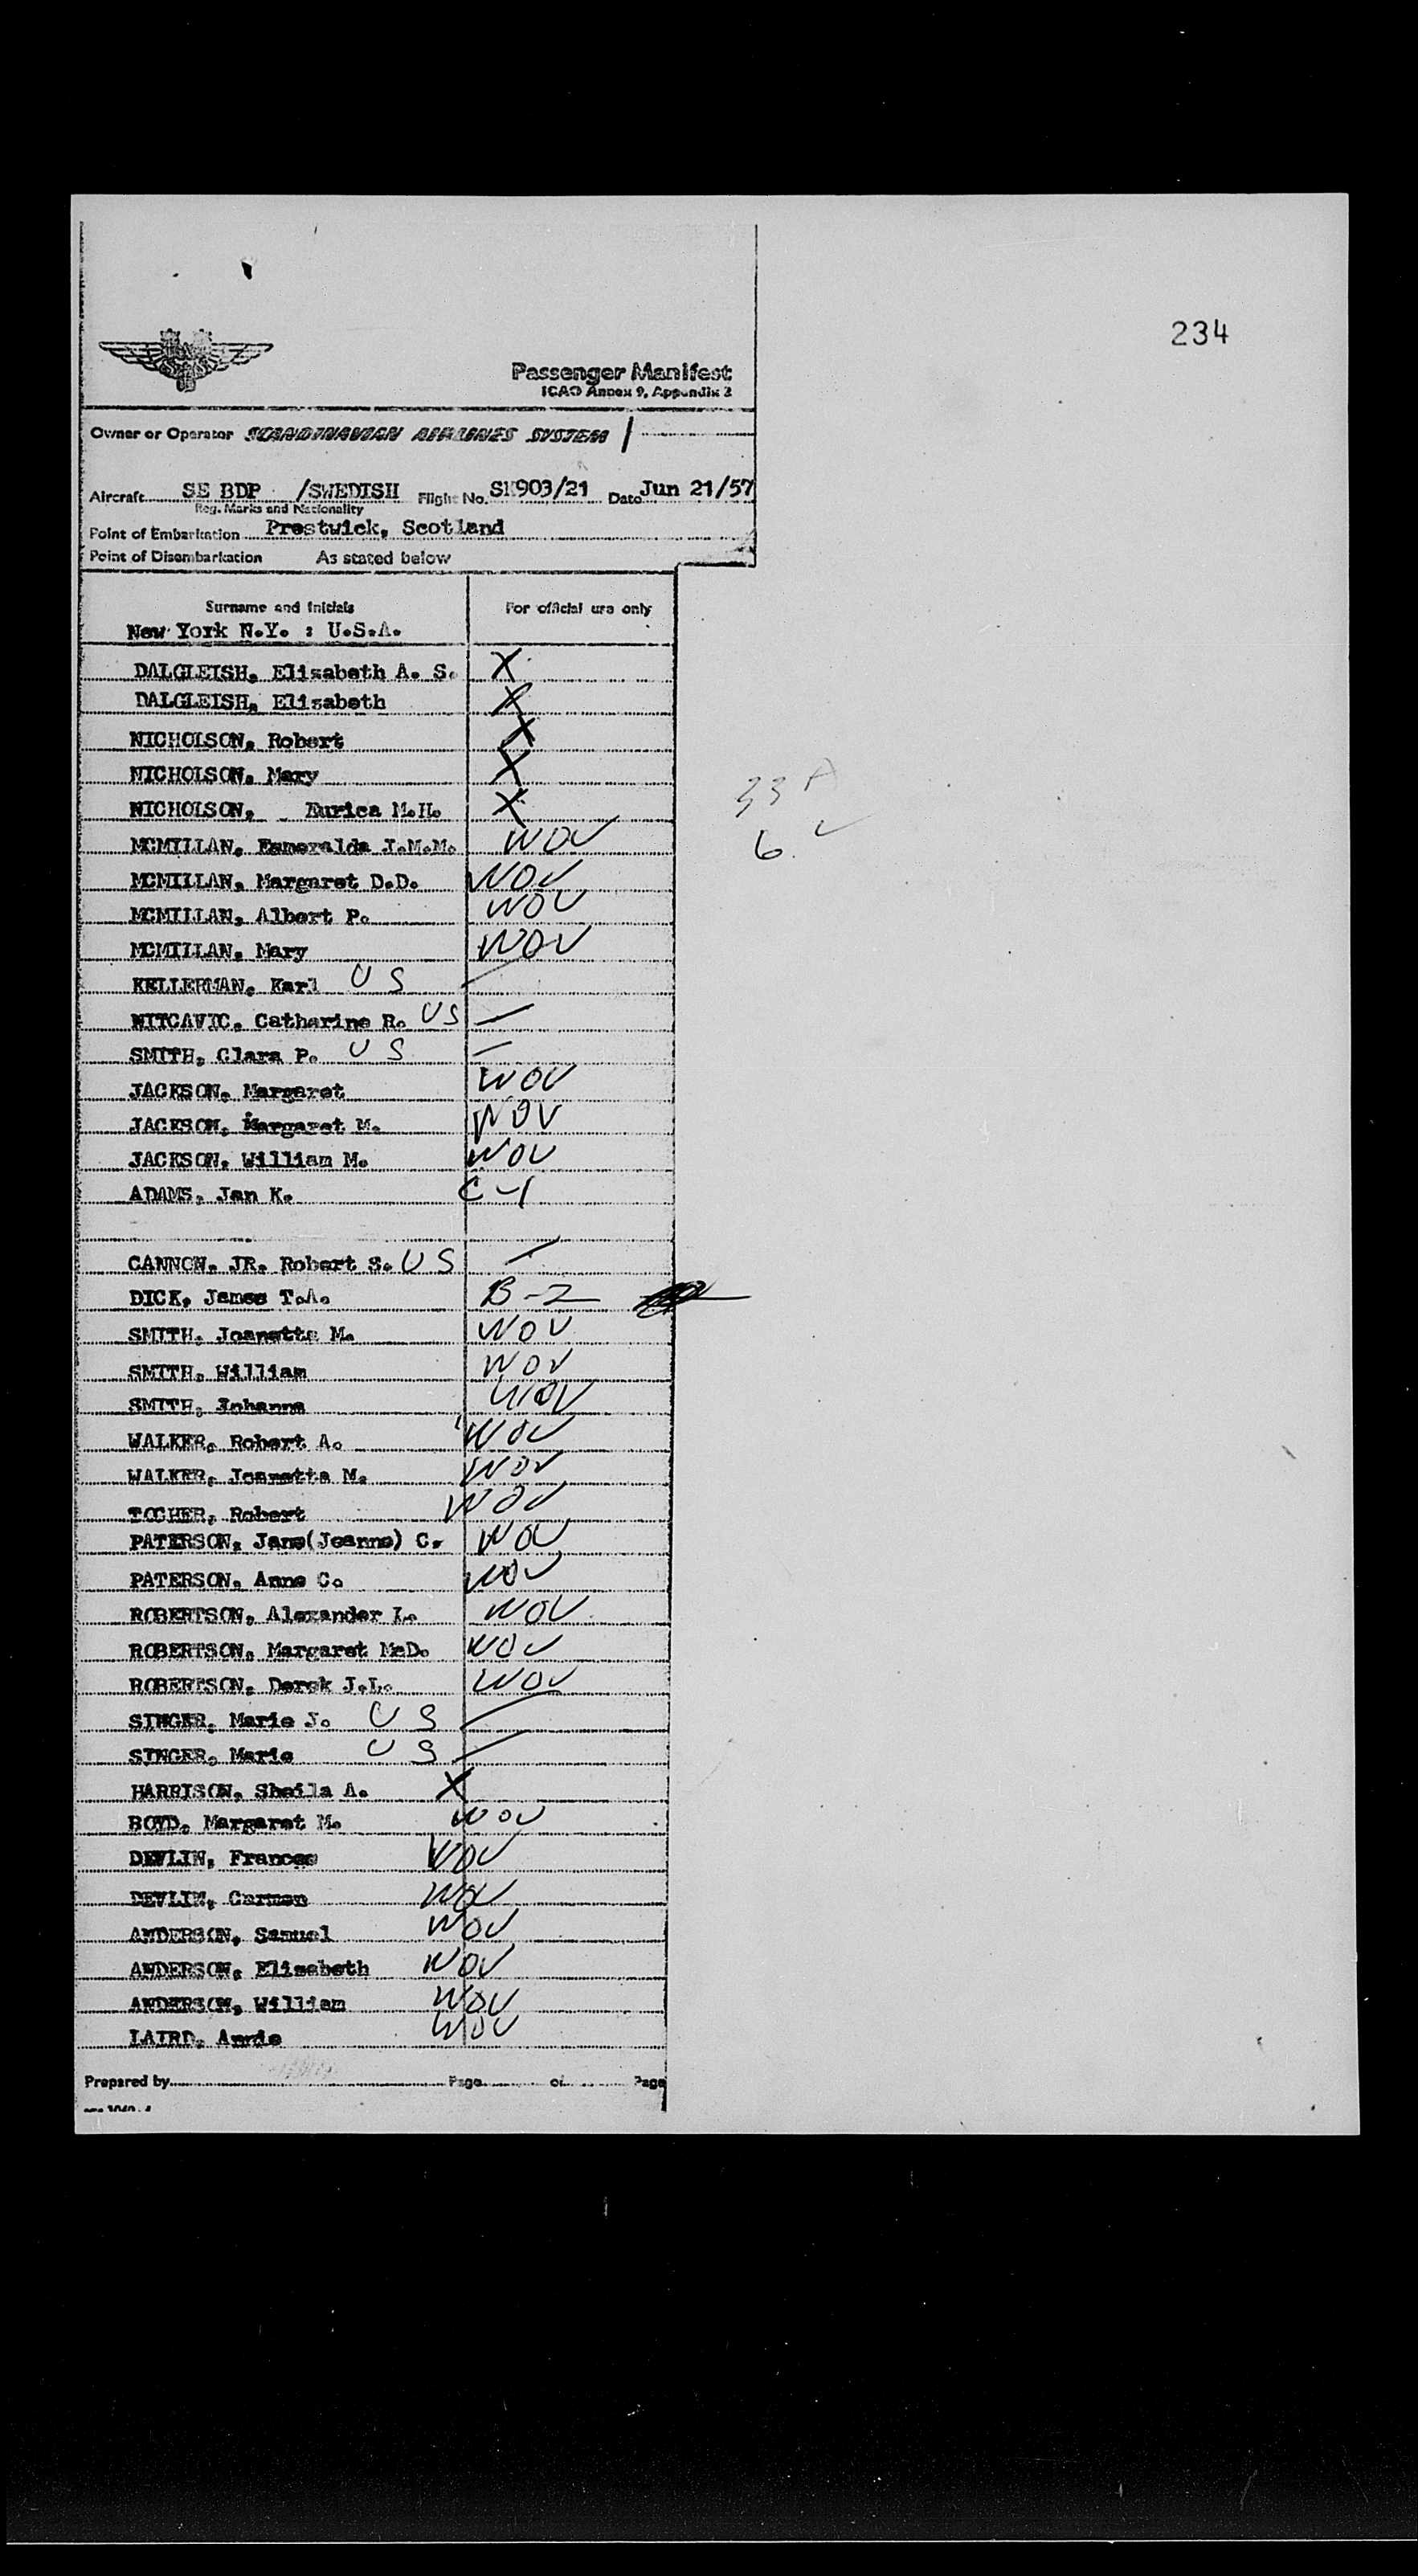 234
Passenger Manifest
ICAO Annex 9, Appendix 2
Owner or Operator SCANDINAVIAN AIRLINES SYSTEM
Aircraft SE BDP /SWEDISH Flight No. SK903/21 Date Jun 21/57
Reg. Marks and Nationality
Point of Embarkation Prestwick, Scotland
Point of Disembarkation As stated below
Surname and Initials For official use only
New York N.Y. : U.S.A.
DALGLEISH, Elisabeth A. S. X
DALGLEISH, Elisabeth X
NICHOLSON, Robert X
NICHOLSON, Mary X
NICHOLSON, Eurica M.H. X
33 A
MCMILLAN, Esmeralda J.M.M. WOV
6
MCMILLAN, Margaret D.D. WOV
MCMILLAN, Albert P. WOV
MCMILLAN, Mary WOV
KELLERMAN, Karl US
WITCAVIC, Catharine R. US
SMITH, Clara P. US
JACKSON, Margaret WOV
JACKSON, Margaret M. WOV
JACKSON, William M. WOV
ADAMS, Jan K. C-1
CANNON, JR. Robert S. US
DICK, James T.A. B-2
SMITH, Jeanetta M. WOV
SMITH, William WOV
SMITH, Johanna WOV
WALKER, Robert A. WOV
WALKER, Jeanetta M. WOV
TOCHER, Robert WOV
PATERSON, Jane(Jeanne) C. WOV
PATERSON, Anne C. WOV
ROBERTSON, Alexander L. WOV
ROBERTSON, Margaret McD. WOV
ROBERTSON, Derek J.L. WOV
SINGER, Marie J. US
SINGER, Marie US
HARRISON, Sheila A. X
BOYD, Margaret M. WOV
DEVLIN, Frances WOV
DEVLIN, Carmen WOV
ANDERSON, Samuel WOV
ANDERSON, Elisabeth WOV
ANDERSON, William WOV
LAIRD, Annie WOV
Prepared by Page of Page